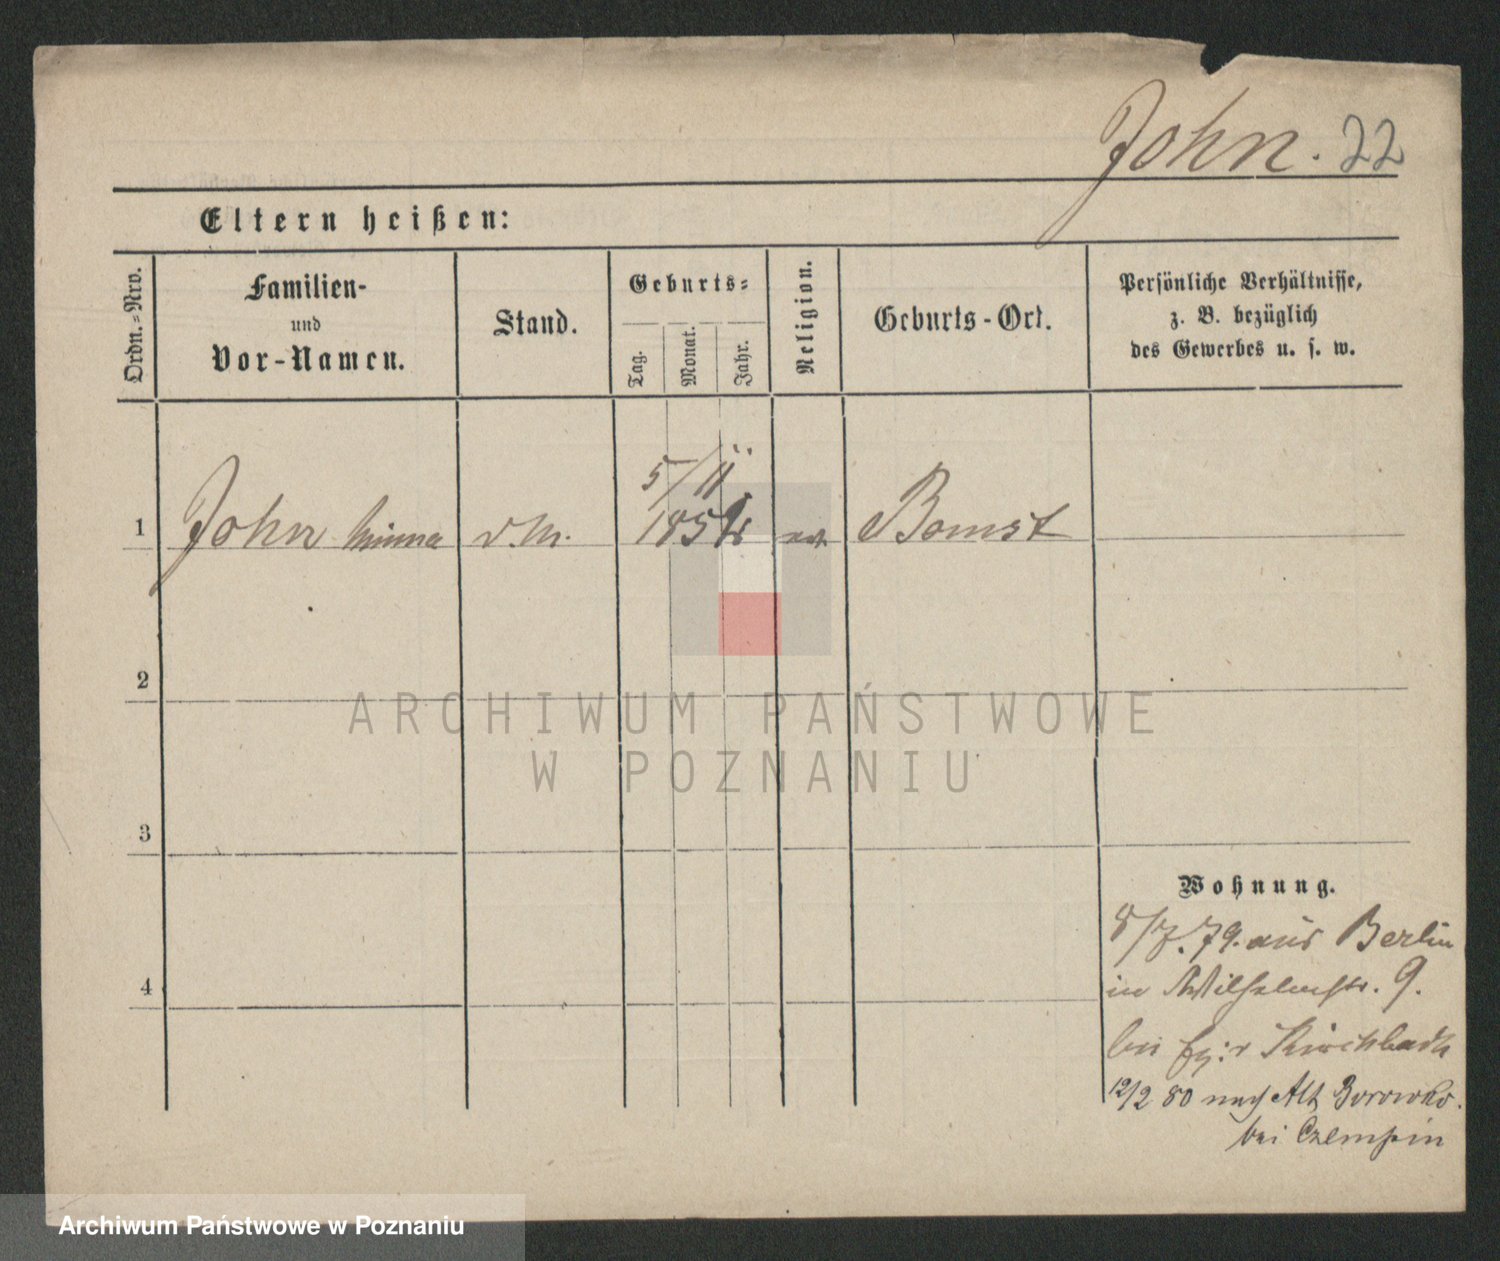 John. 22
Eltern heißen:
Ordn.=Nro.
Familien-
und
Vor-Namen.
Stand.
Geburts=
Tag.
Monat.
Jahr.
Religion.
Geburts-Ort.
Persönliche Verhältnisse,
z. B. bezüglich
des Gewerbes u. s. w.
5/11
1 John Minna d.M. ev. Bomst
2
3
4
Wohnung.
8/7. 79. aus Berlin
in Wilhelmstr. 9.
bei Kirchbach
12/2 80 nach Alt Borowko.
bei Czempin
ARCHIWUM PAŃSTWOWE
W POZNANIU
Archiwum Państwowe w Poznaniu